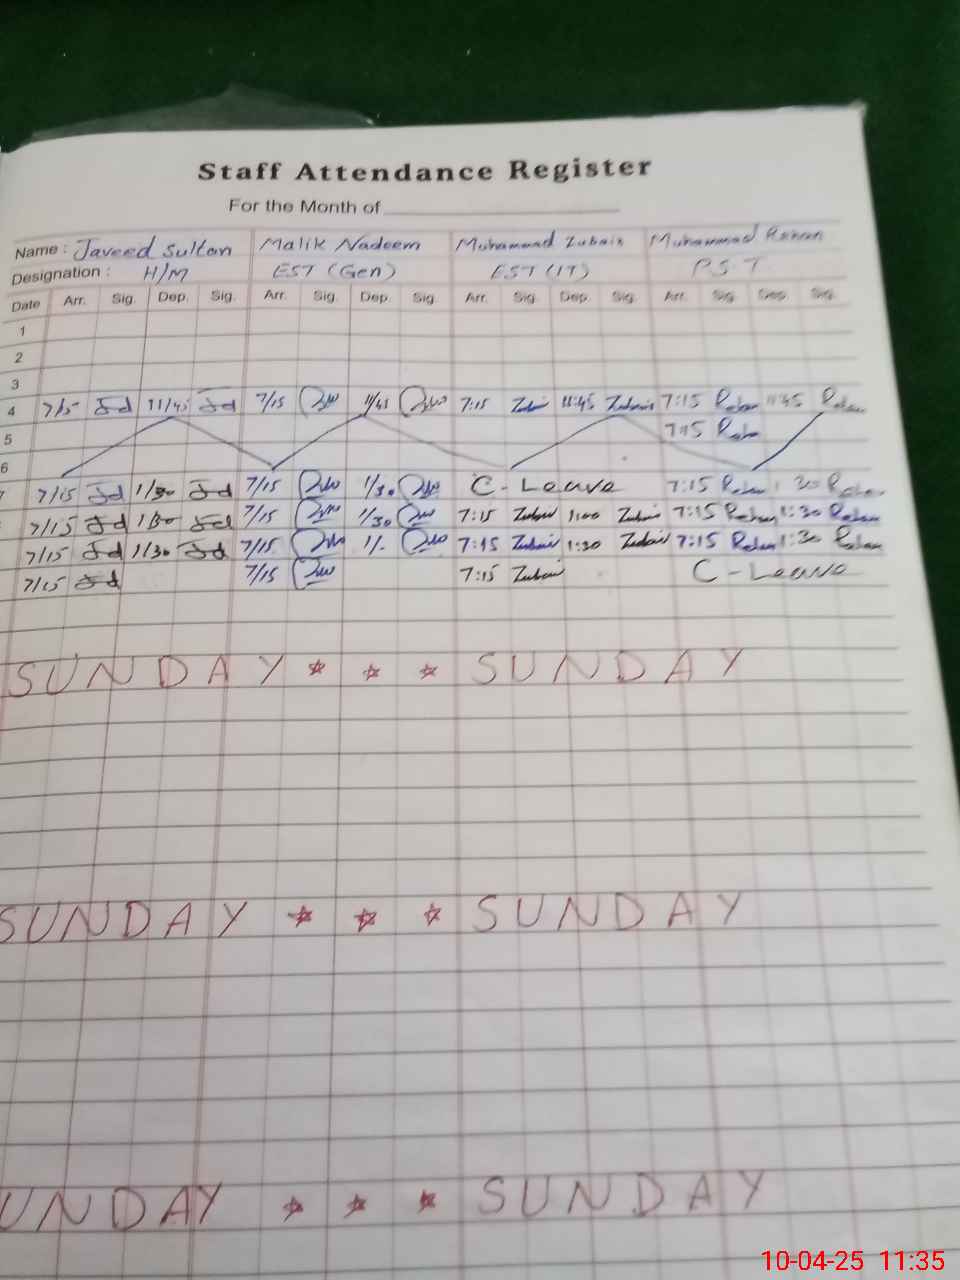 Staff Attendance Register
For the Month of
Name : Javeed Sultan Malik Nadeem Muhammad Zubair Muhammad
Designation : H/M EST (Gen) EST (IT) P.S.T
Date Arr. Sig. Dep. Sig. Arr. Sig. Dep. Sig. Arr. Sig. Dep. Sig. Arr. Sig. Dep. Sig.
1
2
3
4 7/15 Jd 11/45 Jd 7/15 11/45 7:15 Zubair 11:45 Zubair 7:15 11:45
5 7:15
6
7 7/15 Jd 1/30 Jd 7/15 1/30 C - Leave 7:15 1 30
7/15 Jd 1/30 Jd 7/15 1/30 7:15 Zubair 1:00 Zubair 7:15 1:30
7/15 Jd 1/30 Jd 7/15 1/- 7:15 Zubair 1:30 Zubair 7:15 1:30
7/15 Jd 7/15 7:15 Zubair C - Leave
SUNDAY ☆ ☆ ☆ SUNDAY
SUNDAY ☆ ☆ ☆ SUNDAY
UNDAY ☆ ☆ ☆ SUNDAY
10-04-25 11:35